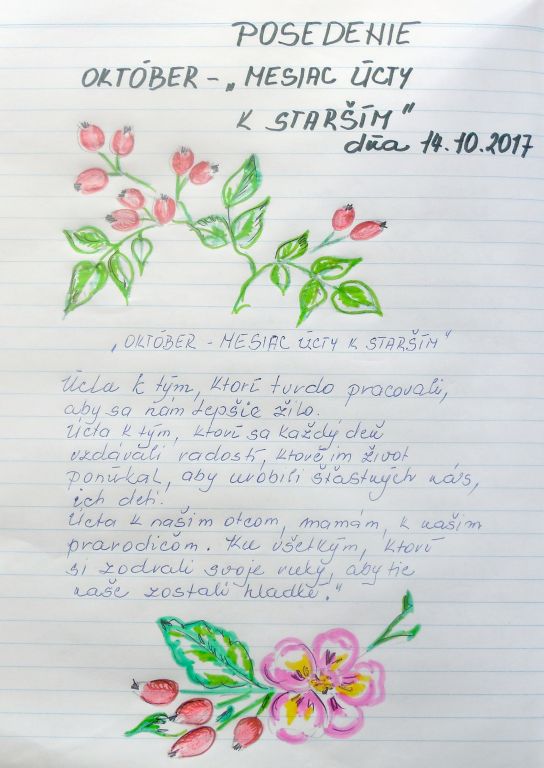 POSEDENIE
OKTÓBER - „MESIAC ÚCTY
K STARŠÍM"
dňa 14.10.2017
„OKTÓBER - MESIAC ÚCTY K STARŠÍM"
Úcta k tým, ktorí tvrdo pracovali,
aby sa nám lepšie žilo.
Úcta k tým, ktorí sa každý deň
vzdávali radostí, ktoré im život
ponúkal, aby urobili šťastných nás,
ich deti.
Úcta k našim otcom, mamám, k našim
prarodičom. Ku všetkým, ktorí
si zodrali svoje ruky, aby tie
naše zostali hladké."